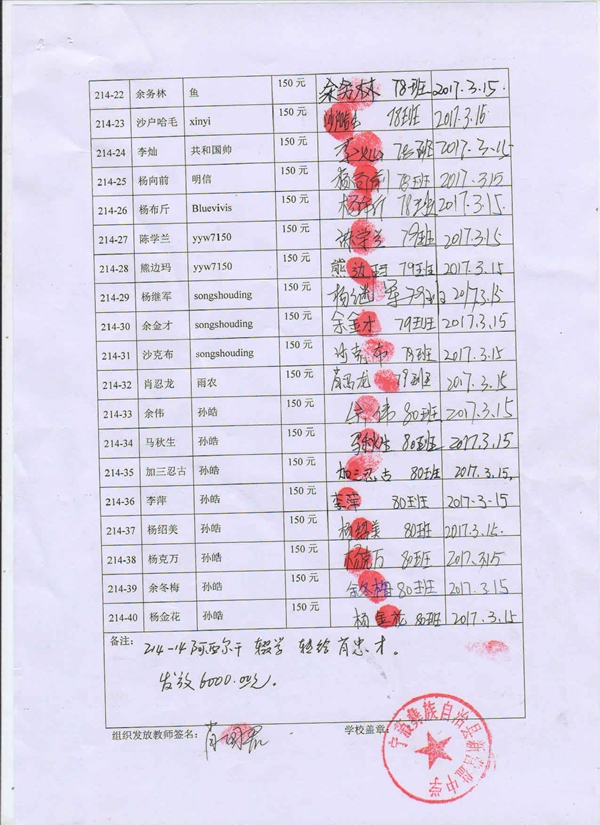 214-22 余务林 鱼 150 元 余务林 78班 2017.3.15.
214-23 沙户哈毛 xinyi 150 元 78班 2017.3.15
214-24 李灿 共和国帅 150 元 李灿 78班 2017.3.15
214-25 杨向前 明信 150 元 杨向前 78班 2017.3.15
214-26 杨布斤 Bluevivis 150 元 杨布斤 78班 2017.3.15
214-27 陈学兰 yyw7150 150 元 陈学兰 79班 2017.3.15
214-28 熊边玛 yyw7150 150 元 熊边玛 79班 2017.3.15
214-29 杨继军 songshouding 150 元 杨继军 79班 2017.3.15
214-30 余金才 songshouding 150 元 余金才 79班 2017.3.15
214-31 沙克布 songshouding 150 元 沙克布 79班 2017.3.15
214-32 肖忍龙 雨农 150 元 肖忍龙 79班 2017.3.15
214-33 余伟 孙皓 150 元 余伟 80班 2017.3.15
214-34 马秋生 孙皓 150 元 马秋生 80班 2017.3.15
214-35 加三忍古 孙皓 150 元 加三忍古 80班 2017.3.15.
214-36 李萍 孙皓 150 元 李萍 80班 2017.3-15
214-37 杨绍美 孙皓 150 元 杨绍美 80班 2017.3.15.
214-38 杨克万 孙皓 150 元 杨克万 80班 2017.3.15
214-39 余冬梅 孙皓 150 元 余冬梅 80班 2017.3.15
214-40 杨金花 孙皓 150 元 杨金花 80班 2017.3.15
备注： 214-14阿西尔干 辍学 转给肖忠才。
发放6000.00元。
组织发放教师签名： 学校盖章：
宁蒗彝族自治县新营盘中学